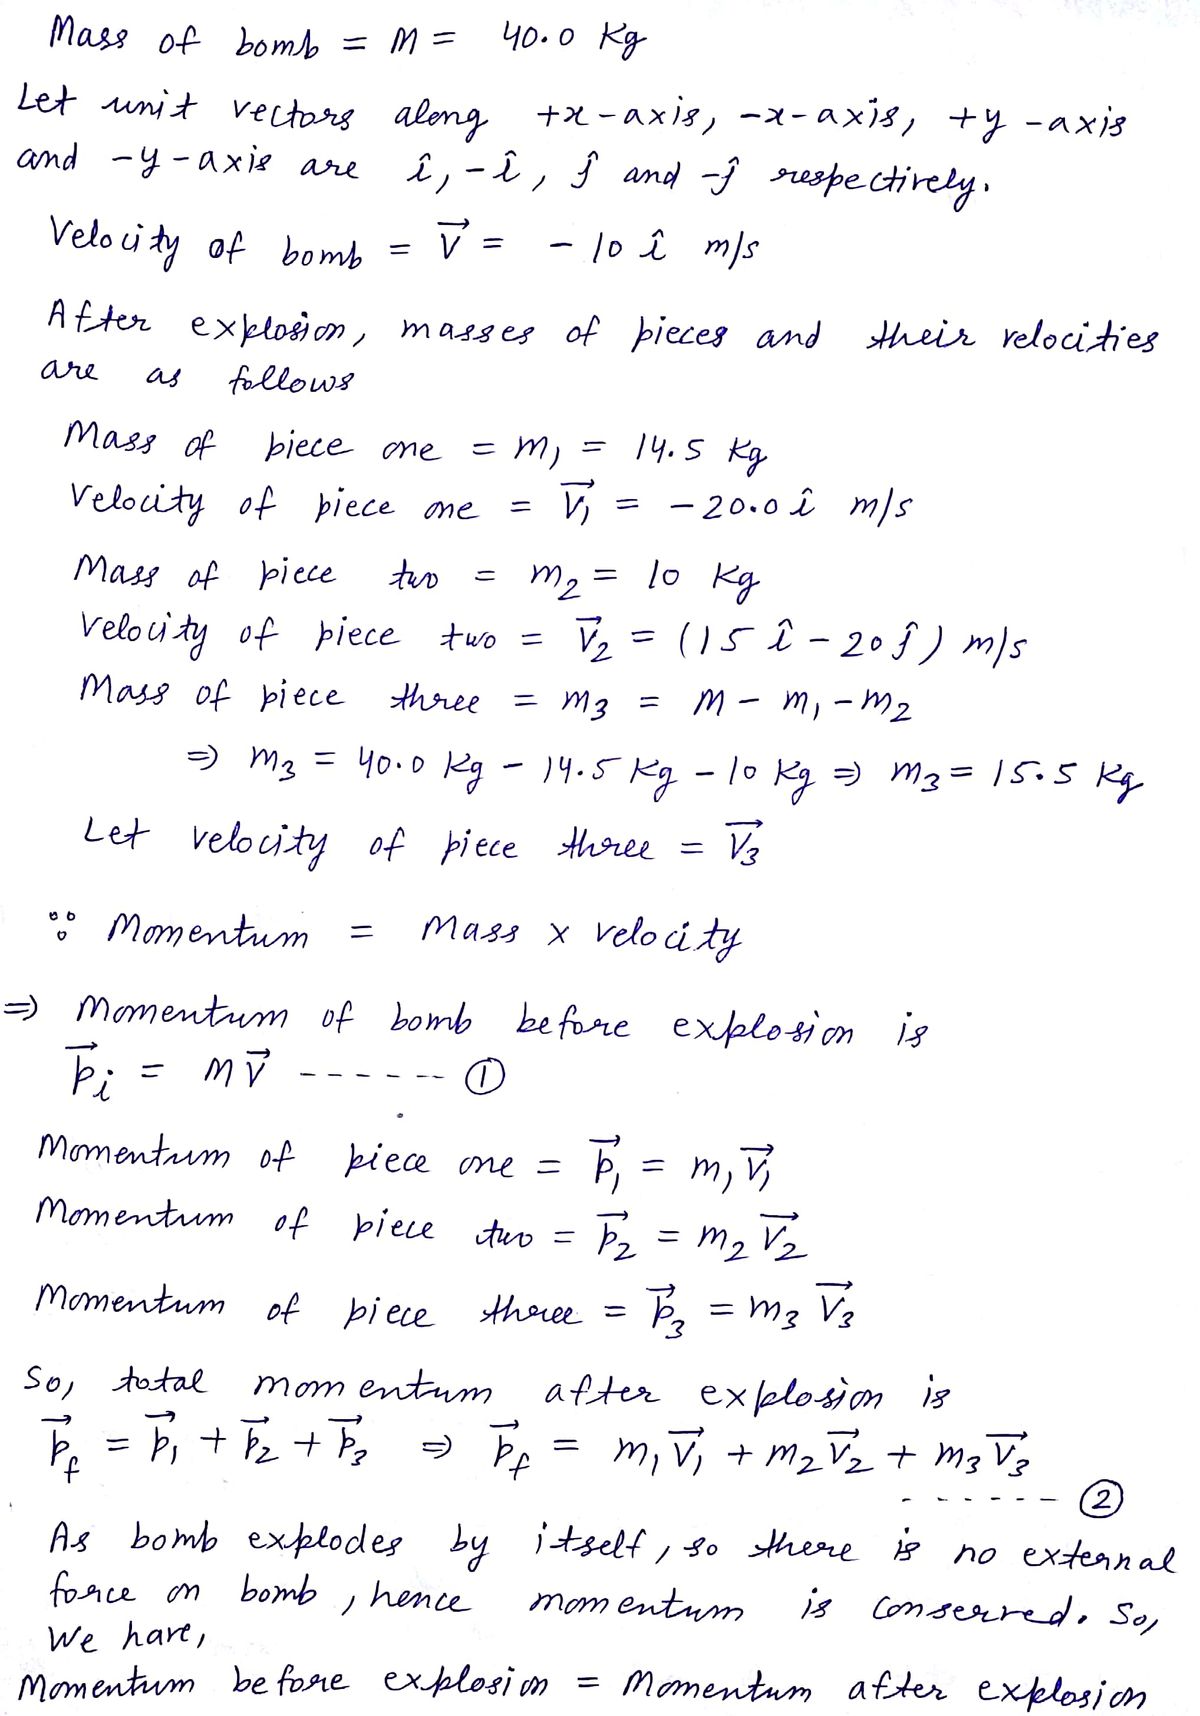 Mass of bomb = M = 40.0 Kg
Let unit vectors along +x-axis, -x-axis, +y-axis
and -y-axis are î, -î, ĵ and -ĵ respectively.
Velocity of bomb = V⃗ = -10 î m/s
After explosion, masses of pieces and their velocities
are as follows
Mass of piece one = m₁ = 14.5 Kg
Velocity of piece one = V⃗₁ = -20.0 î m/s
Mass of piece two = m₂ = 10 Kg
Velocity of piece two = V⃗₂ = (15 î - 20 ĵ) m/s
Mass of piece three = m₃ = M - m₁ - m₂
⇒ m₃ = 40.0 Kg - 14.5 Kg - 10 Kg ⇒ m₃ = 15.5 Kg
Let velocity of piece three = V⃗₃
∵ Momentum = Mass x velocity
⇒ Momentum of bomb before explosion is
p⃗ᵢ = MV⃗ ------ ①
Momentum of piece one = p⃗₁ = m₁V⃗₁
Momentum of piece two = p⃗₂ = m₂V⃗₂
Momentum of piece three = p⃗₃ = m₃V⃗₃
So, total momentum after explosion is
p⃗_f = p⃗₁ + p⃗₂ + p⃗₃ ⇒ p⃗_f = m₁V⃗₁ + m₂V⃗₂ + m₃V⃗₃
------ ②
As bomb explodes by itself, so there is no external
force on bomb, hence momentum is conserved. So,
We have,
Momentum before explosion = Momentum after explosion